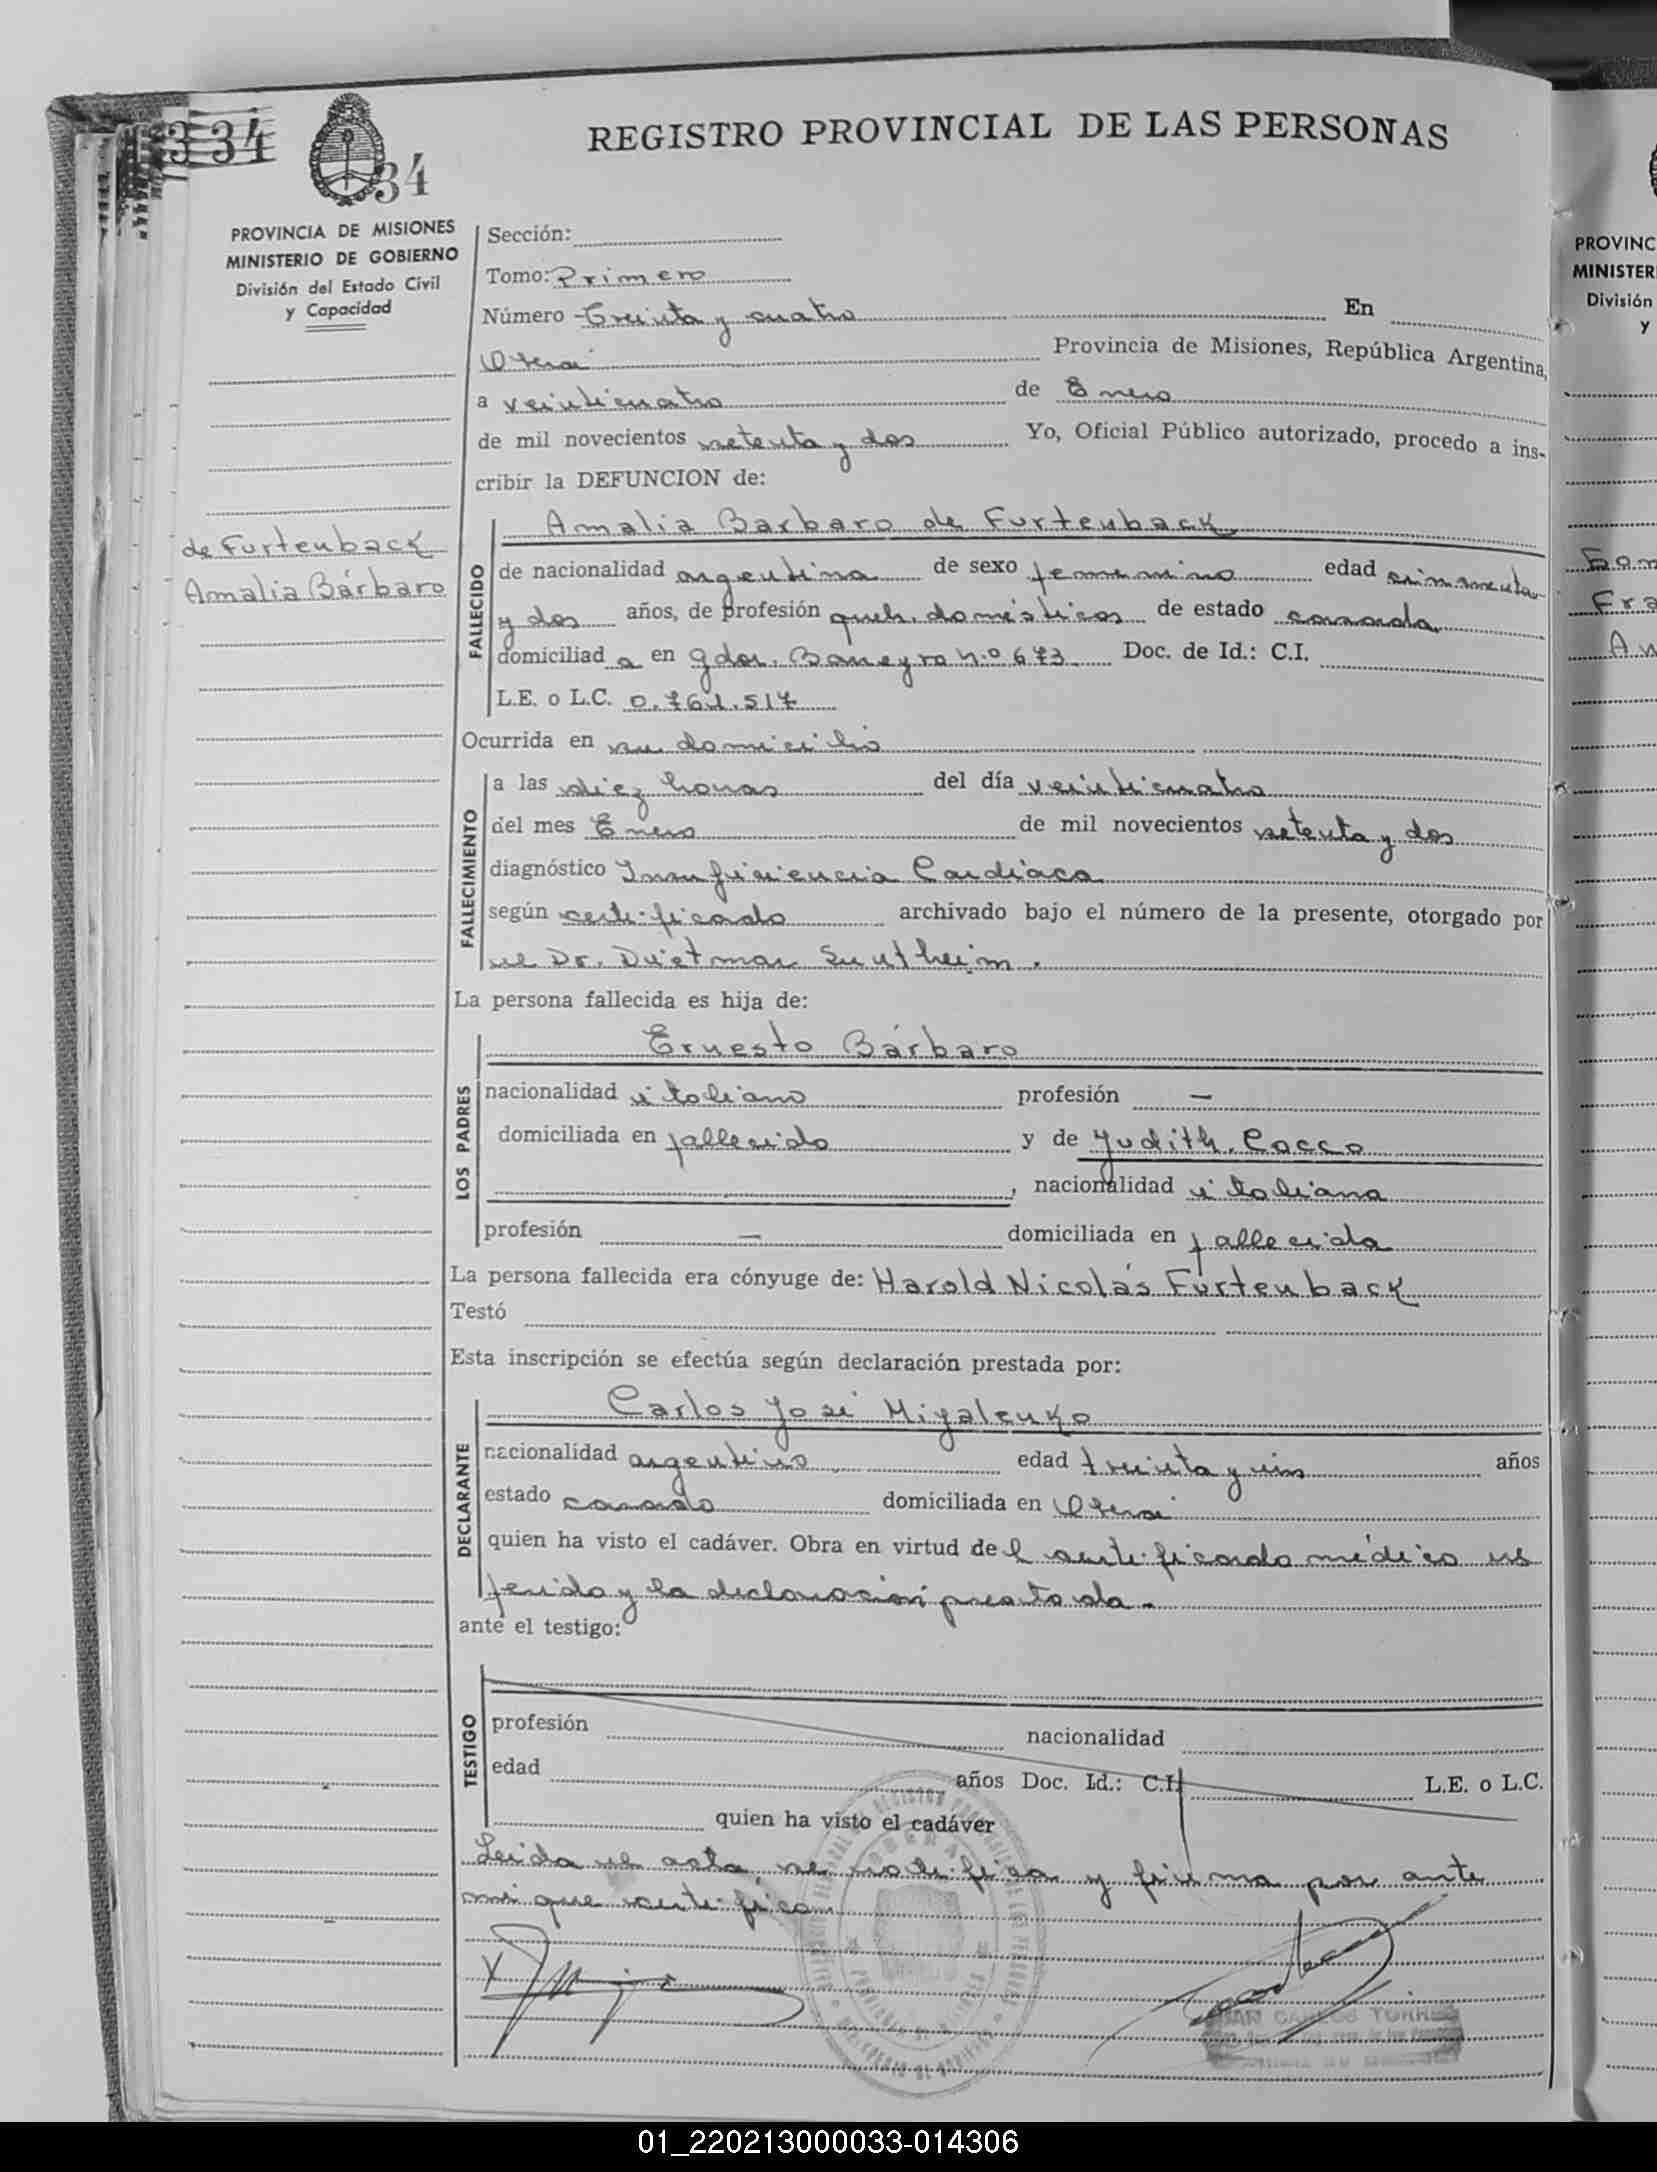 334
34
REGISTRO PROVINCIAL DE LAS PERSONAS
PROVINCIA DE MISIONES
MINISTERIO DE GOBIERNO
División del Estado Civil
y Capacidad
de Furtenback
Amalia Bárbaro
Sección:
Tomo: Primero
Número Treinta y cuatro En
Oberá Provincia de Misiones, República Argentina,
a veinticuatro de Enero
de mil novecientos setenta y dos Yo, Oficial Público autorizado, procedo a ins-
cribir la DEFUNCION de:
FALLECIDO
Amalia Barbaro de Furtenback
de nacionalidad argentina de sexo femenino edad cincuenta
y dos años, de profesión queh. domésticos de estado casada
domiciliad a en gdor. Baneyro n.o 673 Doc. de Id.: C.I.
L.E. o L.C. 0.761.517
Ocurrida en su domicilio
FALLECIMIENTO
a las diez horas del día veinticuatro
del mes Enero de mil novecientos setenta y dos
diagnóstico Insuficiencia Cardíaca
según certificado archivado bajo el número de la presente, otorgado por
el Dr. Dietmar Suntheim.
La persona fallecida es hija de:
LOS PADRES
Ernesto Bárbaro
nacionalidad italiano profesión —
domiciliada en fallecido y de Judith Cocco
, nacionalidad italiana
profesión — domiciliada en fallecida
La persona fallecida era cónyuge de: Harold Nicolás Furtenback
Testó
Esta inscripción se efectúa según declaración prestada por:
DECLARANTE
Carlos José Migalenko
nacionalidad argentino edad treinta y un años
estado casado domiciliada en Oberá
quien ha visto el cadáver. Obra en virtud del certificado médico re
ferido y la declaración prestada.
ante el testigo:
TESTIGO
profesión nacionalidad
edad años Doc. Id.: C.I. L.E. o L.C.
quien ha visto el cadáver
Leída el acta se notifica y firma por ante
mi que certifico.
X
PROVINC
MINISTER
División
y
01_220213000033-014306